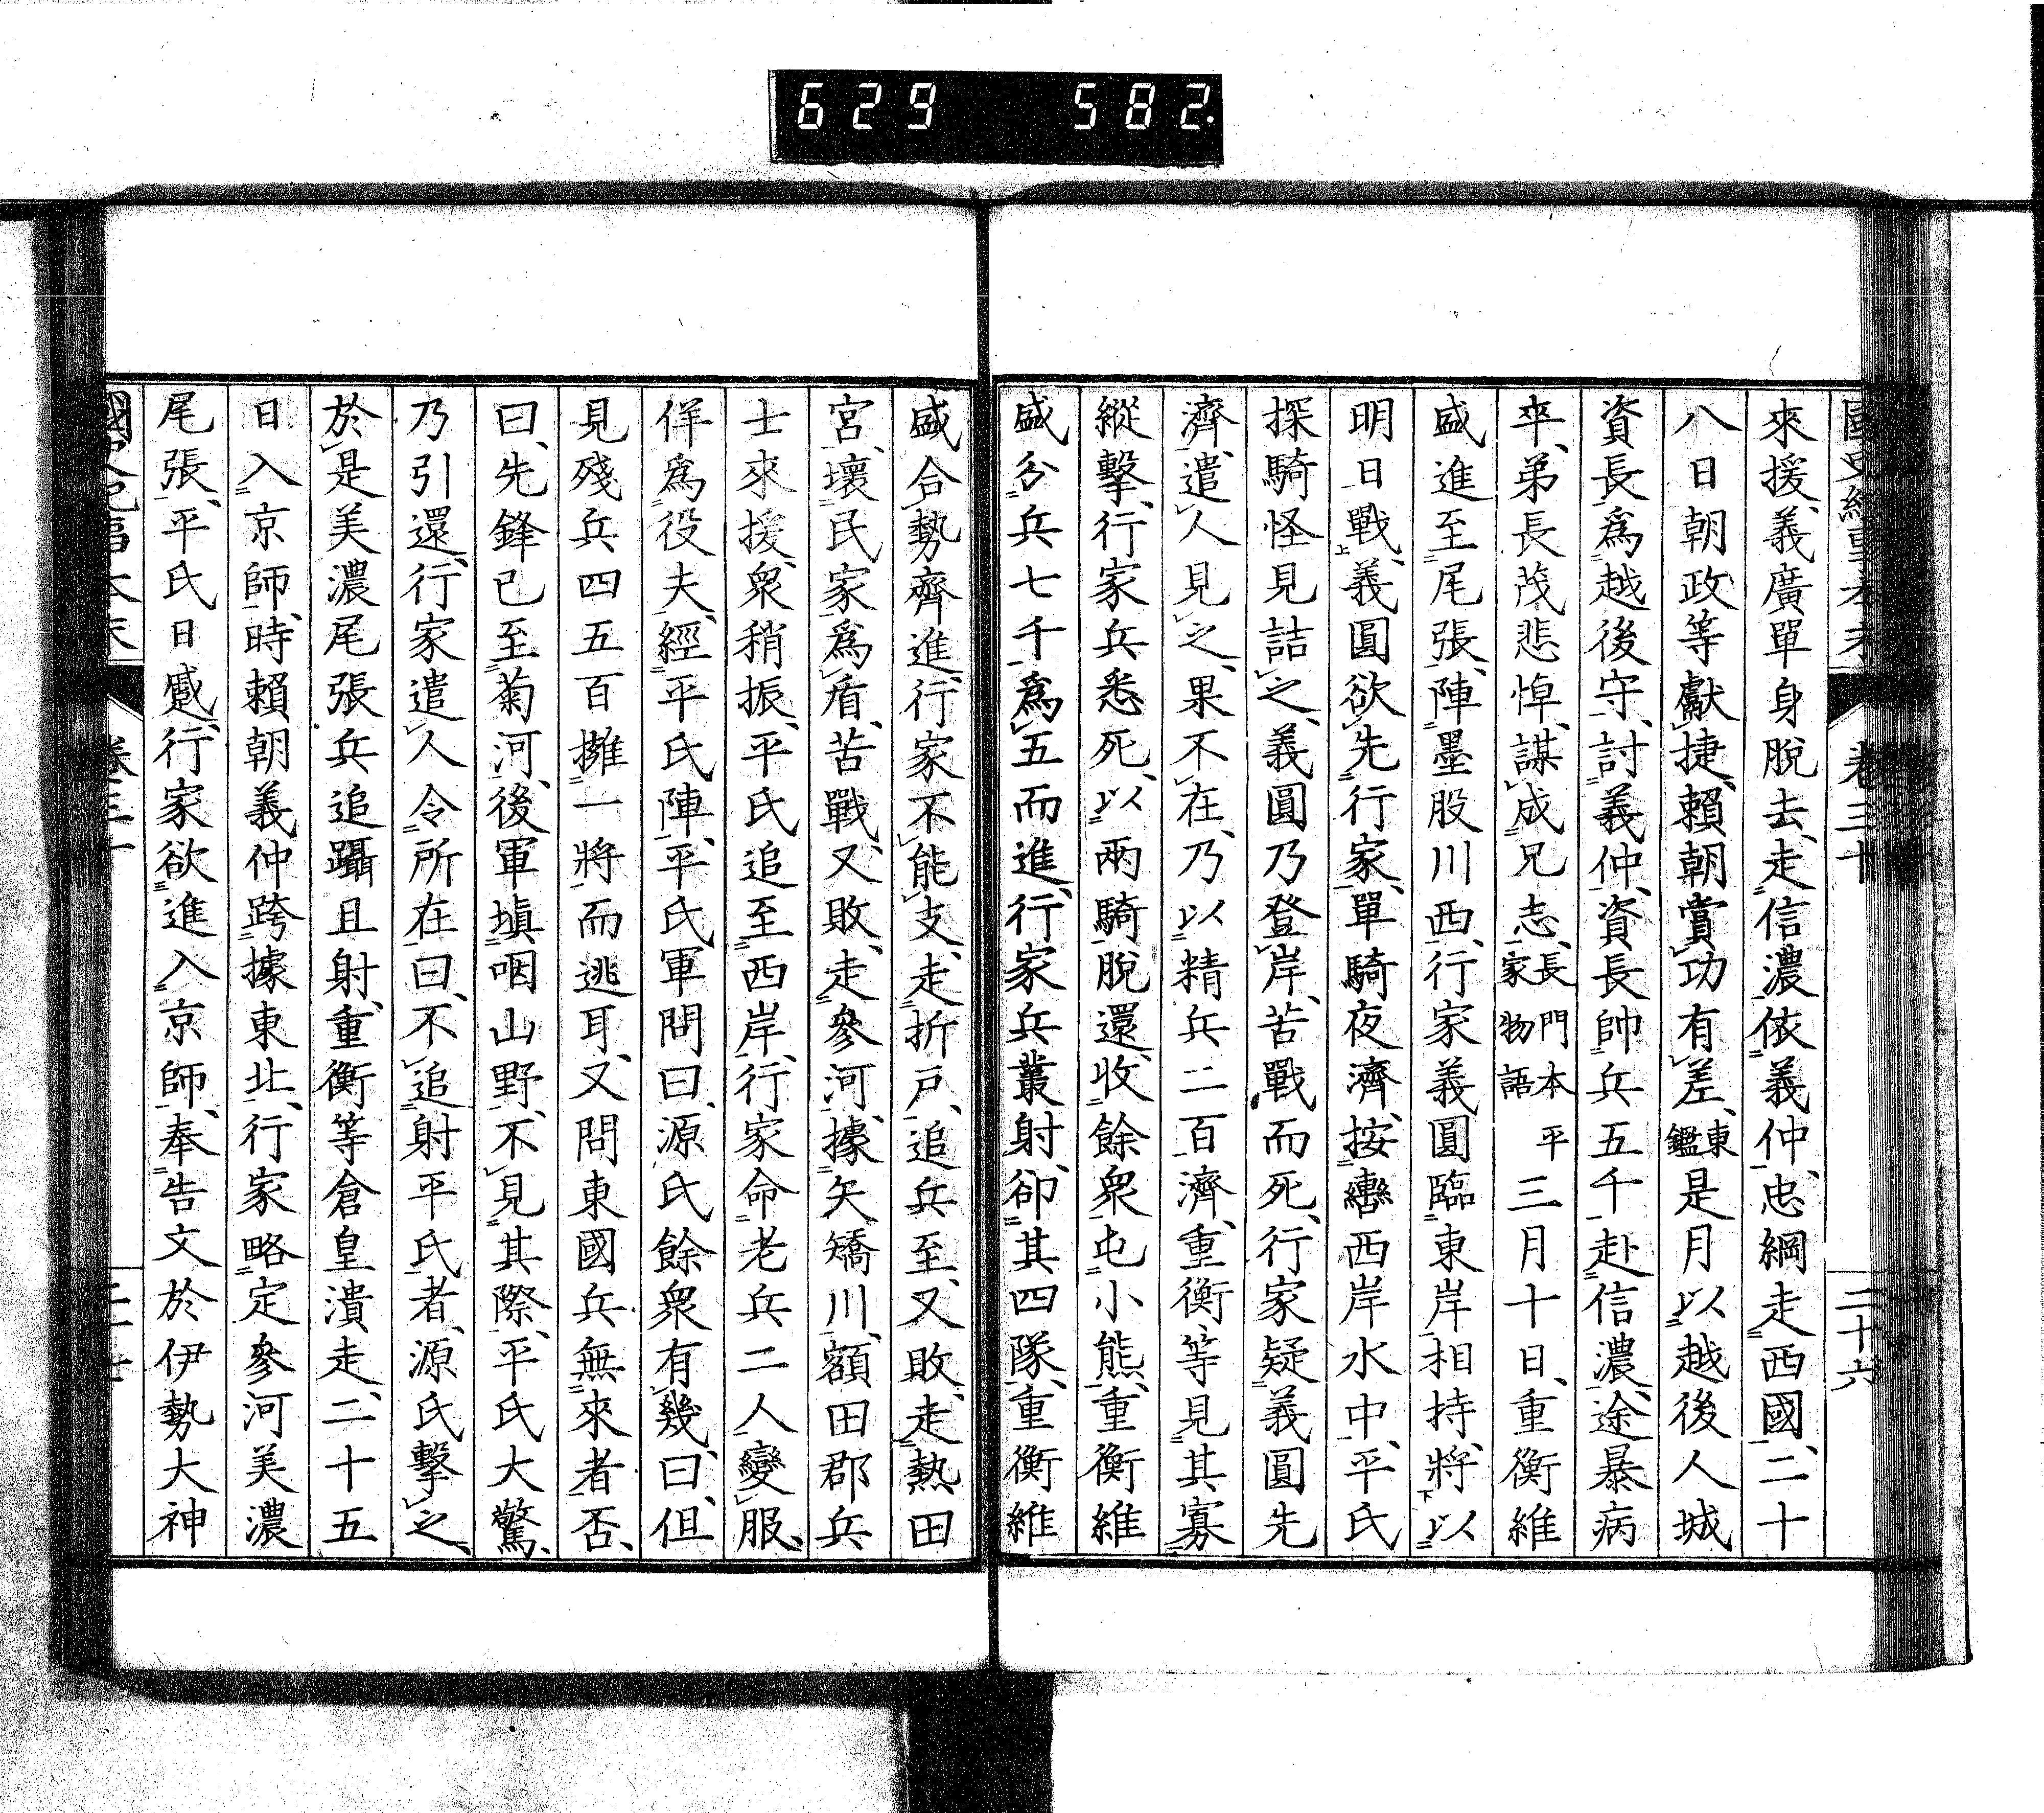 629 582.
國史紀事本末 卷三十 二十六
來援、義廣單身脫去、走信濃依義仲、忠綱走西國、二十
八日朝政等獻捷、賴朝賞功有差、東鑑是月以越後人城
資長爲越後守、討義仲、資長帥兵五千赴信濃、途暴病
卒、弟長茂悲悼、謀成兄志、長門本平家物語三月十日、重衡維
盛進至尾張、陣墨股川西、行家義圓臨東岸相持、將以
明日戰、義圓欲先行家、單騎夜濟、按轡西岸水中、平氏
探騎怪見詰之、義圓乃登岸、苦戰而死、行家疑義圓先
濟、遣人見之、果不在、乃以精兵二百濟、重衡等見其寡
縱擊、行家兵悉死、以兩騎脫還、收餘衆屯小熊、重衡維
盛分兵七千爲五而進、行家兵叢射、卻其四隊、重衡維
盛合勢齊進、行家不能支、走折戸、追兵至、又敗、走熱田
宮、壞民家爲盾、苦戰、又敗、走參河、據矢矯川、額田郡兵
士來援、衆稍振、平氏追至西岸、行家命老兵二人變服、
佯爲役夫、經平氏陣、平氏軍問曰、源氏餘衆有幾、曰、但
見殘兵四五百擁一將而逃耳、又問東國兵無來者否、
曰、先鋒已至菊河、後軍塡咽山野、不見其際、平氏大驚、
乃引還、行家遣人令所在曰、不追射平氏者、源氏擊之、
於是美濃尾張兵追躡且射、重衡等倉皇潰走、二十五
日入京師、時賴朝義仲跨據東北、行家略定參河美濃
尾張、平氏日蹙、行家欲進入京師、奉告文於伊勢大神